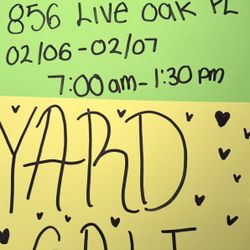 856 Live Oak PL
02/06-02/07
7:00am-1:30pm
YARD